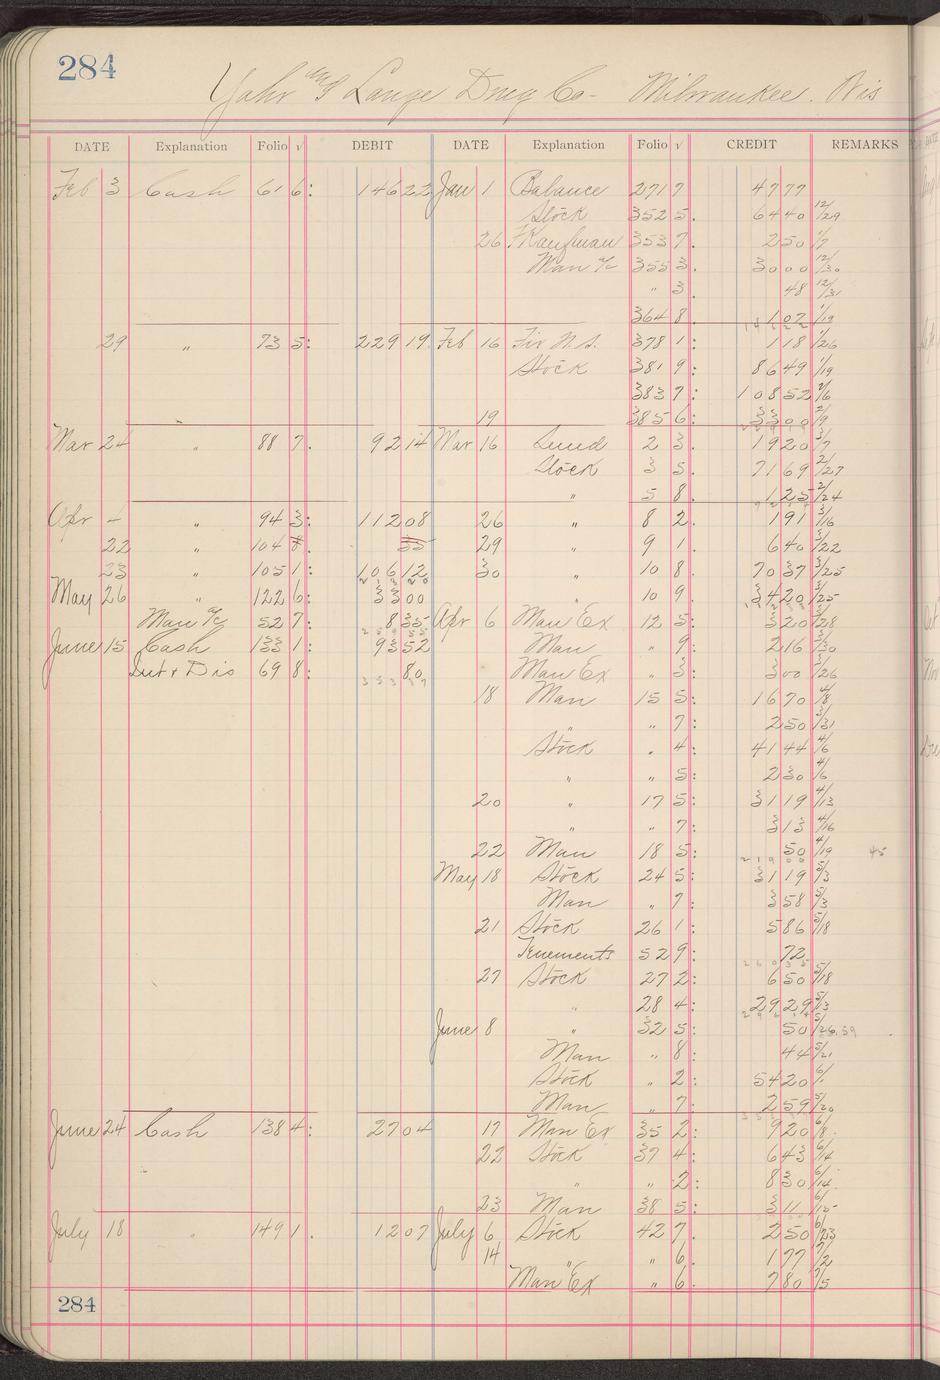 284
Yahr and Lange Drug Co- Milwaukee. Wis
DATE Explanation Folio √ DEBIT DATE Explanation Folio √ CREDIT REMARKS
Feb 3 Cash 61 6: 146 22 Jan 1 Balance 271 7 47 77
Stock 352 5. 64 40 12/29
26 Kaufman 353 7. 2 50 1/7
Man a/c 355 3. 30 00 12/30
" 3. 48 12/31
364 8. 1 07 1/19
29 " 73 5: 229 19 Feb 16 378 1: 1 18 1/26
Stock 381 9: 86 49 1/19
383 7: 108 52 2/6
19 385 6: 33 00 2/9
Mar 24 " 88 7. 92 14 Mar 16 2 3. 19 20 3/7
Stock 3 5. 71 69 2/27
" 5 8. 1 25 2/24
Apr 4 " 94 3: 112 08 26 " 8 2. 1 91 3/16
22 " 104 8. 35 29 " 9 1. 6 40 3/22
23 " 105 1: 106 12 30 " 10 8. 70 37 3/25
May 26 " 122 6: 33 00 " 10 9. 34 20 3/25
Man a/c 52 7: 8 35 Apr 6 Man Ex 12 5: 3 20 3/28
June 15 Cash 133 1: 93 52 Man " 9: 2 16 3/30
Int + Dis 69 8: 80 Man Ex " 3: 3 00 3/26
18 Man 15 5: 16 70 4/8
" " 7: 2 50 3/31
Stock " 4: 41 44 4/6
" " 5: 2 30 4/6
20 " 17 5: 31 19 4/13
" " 7: 3 13 4/16
22 Man 18 5: 50 4/19 45
May 18 Stock 24 5: 31 19 5/3
Man " 7: 3 58 5/3
21 Stock 26 1: 5 86 5/18
Tenements 52 9: 72
27 Stock 27 2: 6 50 5/18
" 28 4: 29 29 5/23
June 8 " 32 5: 50 5/26
Man " 8: 44 5/21
Stock " 2: 54 20 6/1
Man " 7: 2 59 5/20
June 24 Cash 138 4: 27 04 17 Man Ex 35 2: 9 20 6/8
22 Stock 37 4: 6 43 6/14
" " 2: 8 30 6/14
23 Man 38 5: 3 11 6/15
July 18 " 149 1. 12 07 July 6 Stock 42 7. 2 50 6/23
14 " " 6. 1 77 7/2
Man Ex " 6. 7 80 7/5
284